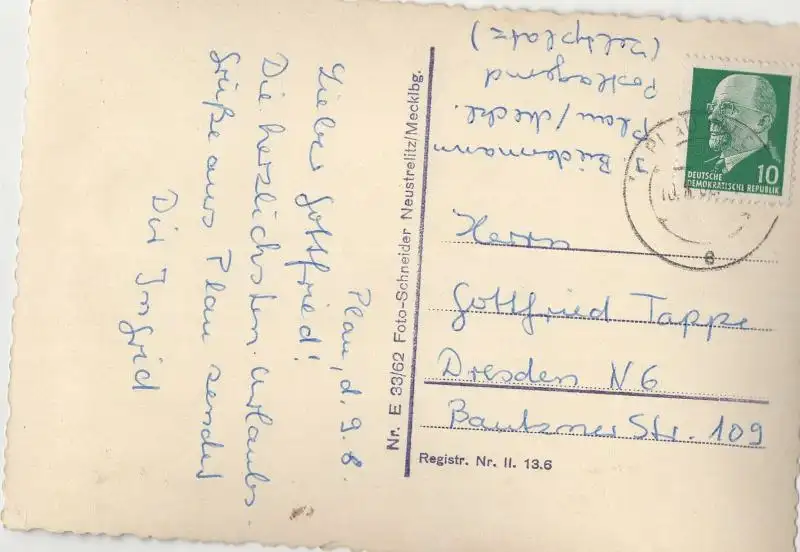 Plau, d. 9. 8.
Lieber Gottfried!
Die herzlichsten Urlaubs-
grüße aus Plau sendet
Dir Ingrid
Nr. E 33/62 Foto-Schneider Neustrelitz/Mecklbg.
I. Büdemann
Plau/Meckl.
Postlagernd
(Zeltplatz)
10
DEUTSCHE
DEMOKRATISCHE REPUBLIK
PLAU
e
Herrn
Gottfried Tappe
Dresden N 6
Bautzner Str. 109
Registr. Nr. II. 13.6